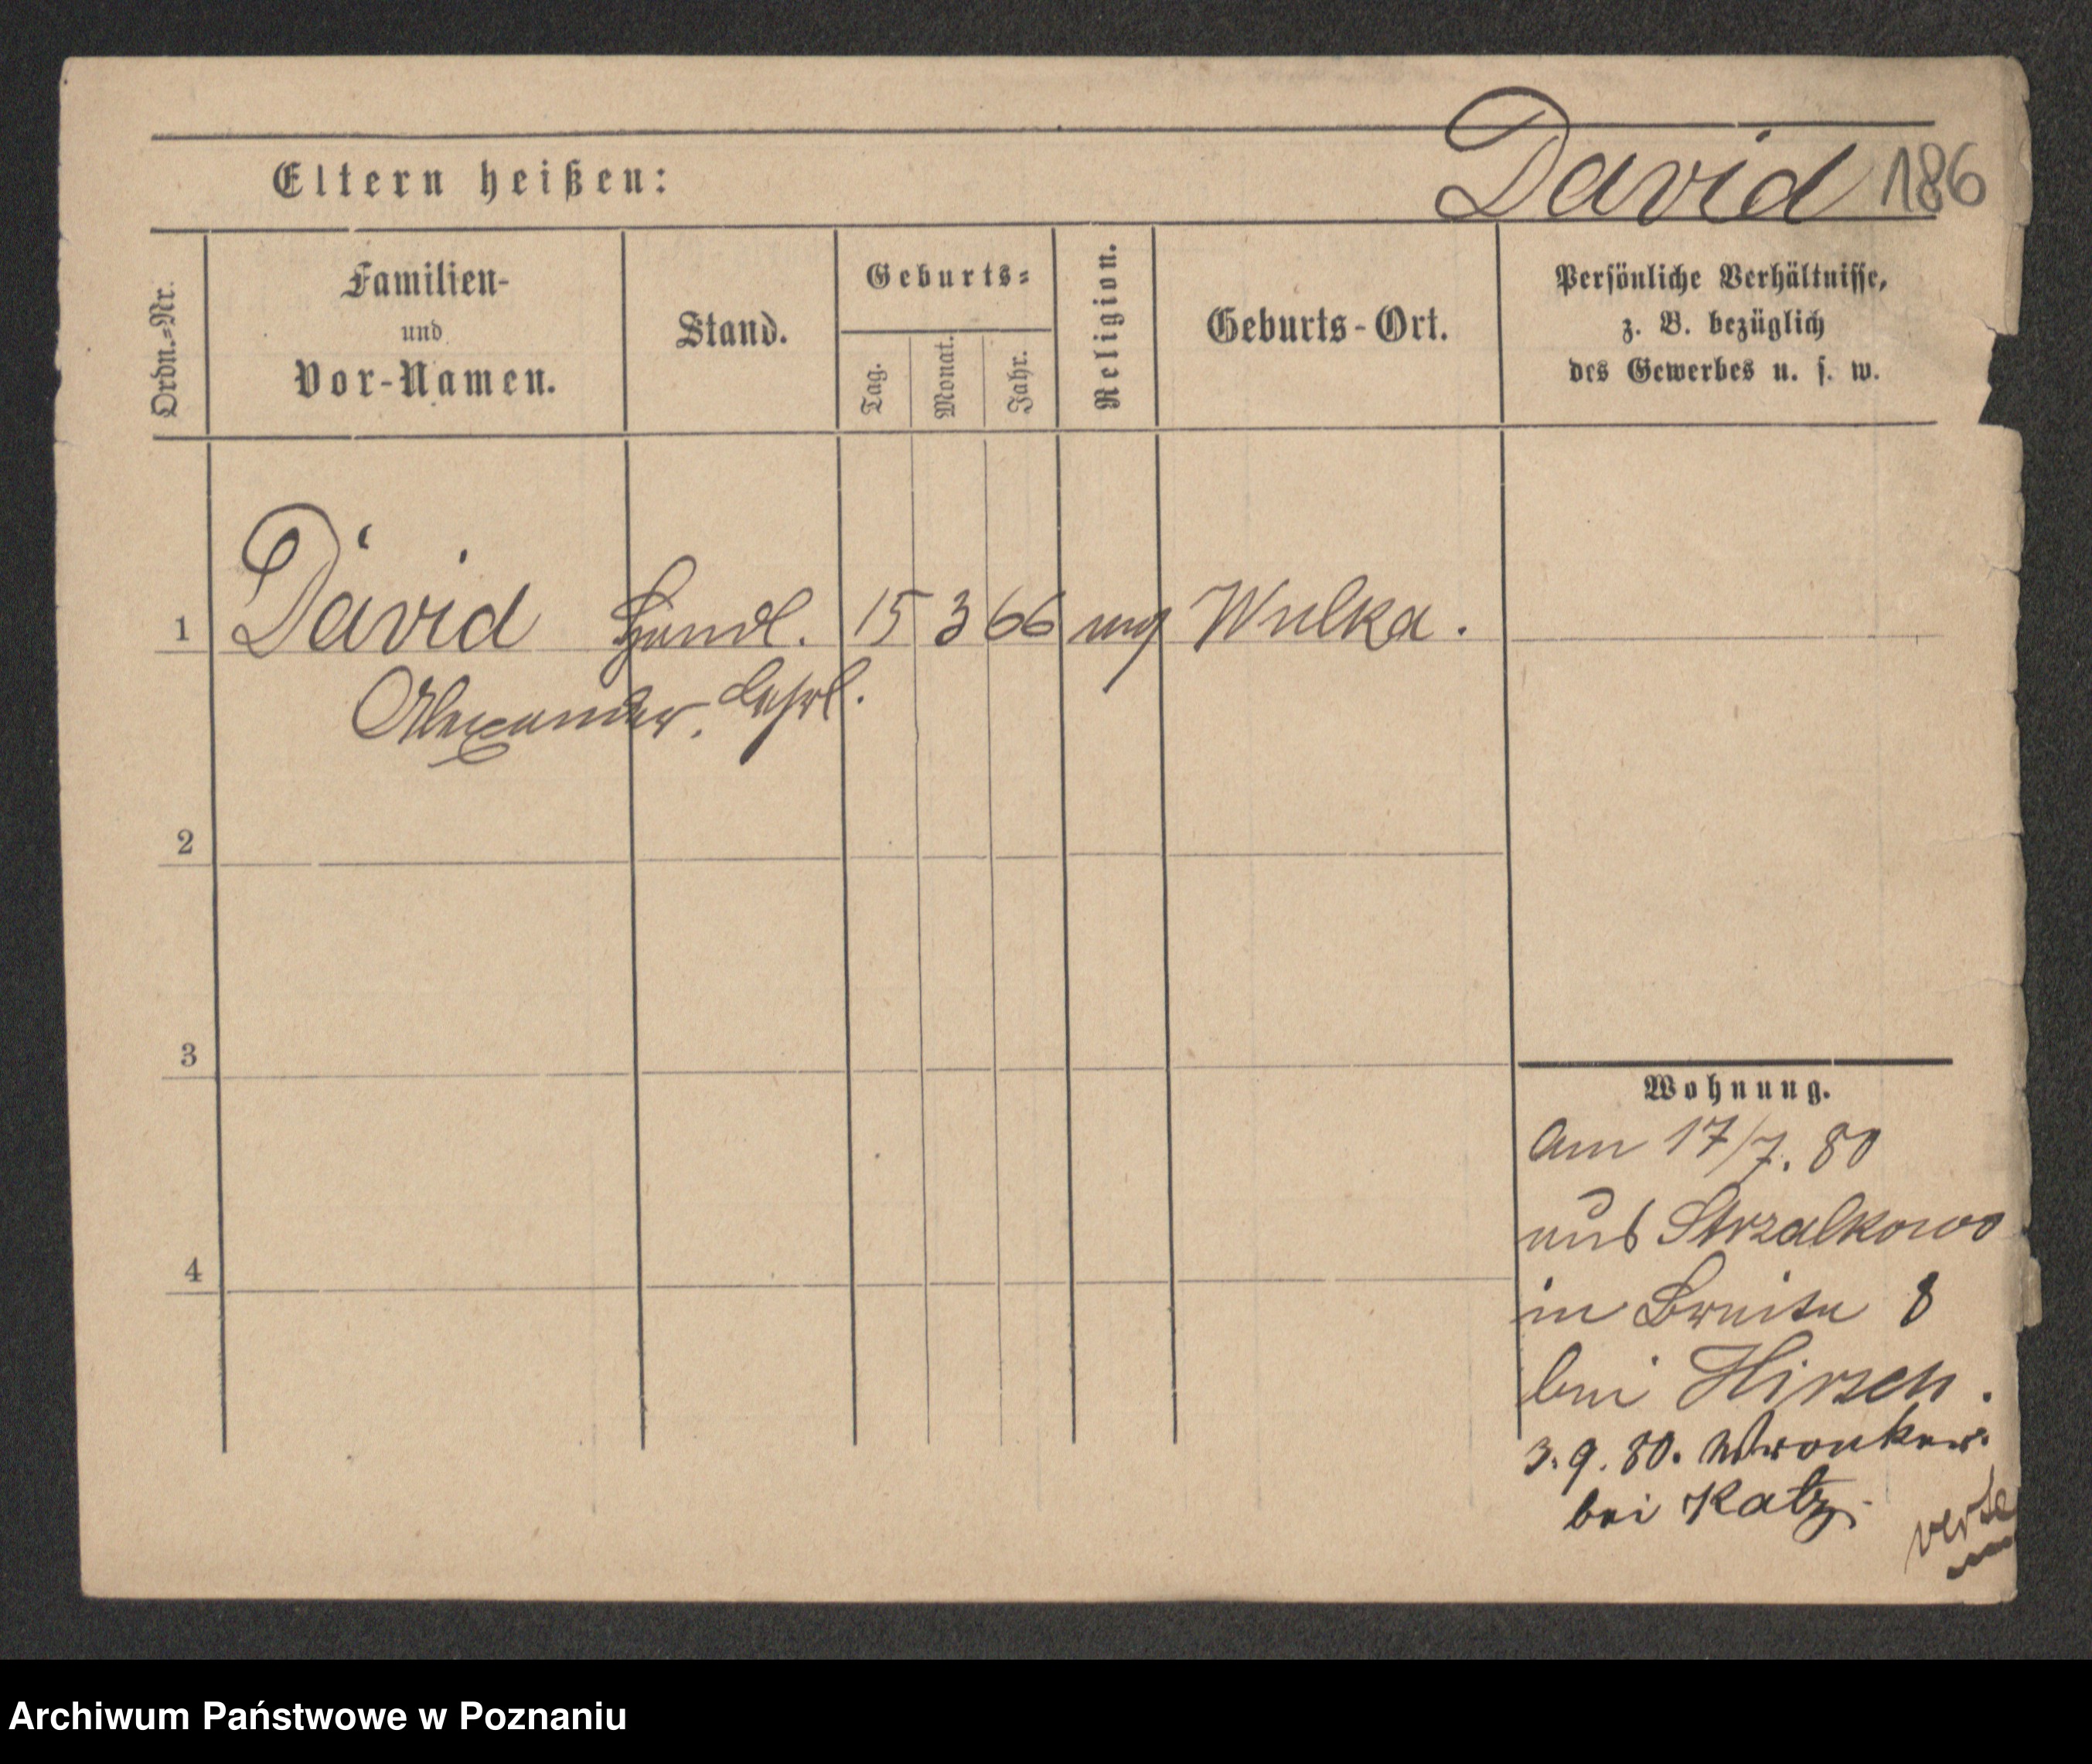 Eltern heißen:
David 186
Ordn.=Nr.
Familien-
und
Vor-Namen.
Stand.
Geburts=
Tag.
Monat.
Jahr.
Religion.
Geburts-Ort.
Persönliche Verhältnisse,
z. B. bezüglich
des Gewerbes u. s. w.
1 David Handl. 15 3 66 Wulka.
Alexander. Lehrl.
2
3
4
Wohnung.
Am 17/7. 80
aus Strzalkowo
in Breite 8
bei Hirsch.
3. 9. 80. Wronker.
bei Katz.
verte
Archiwum Państwowe w Poznaniu